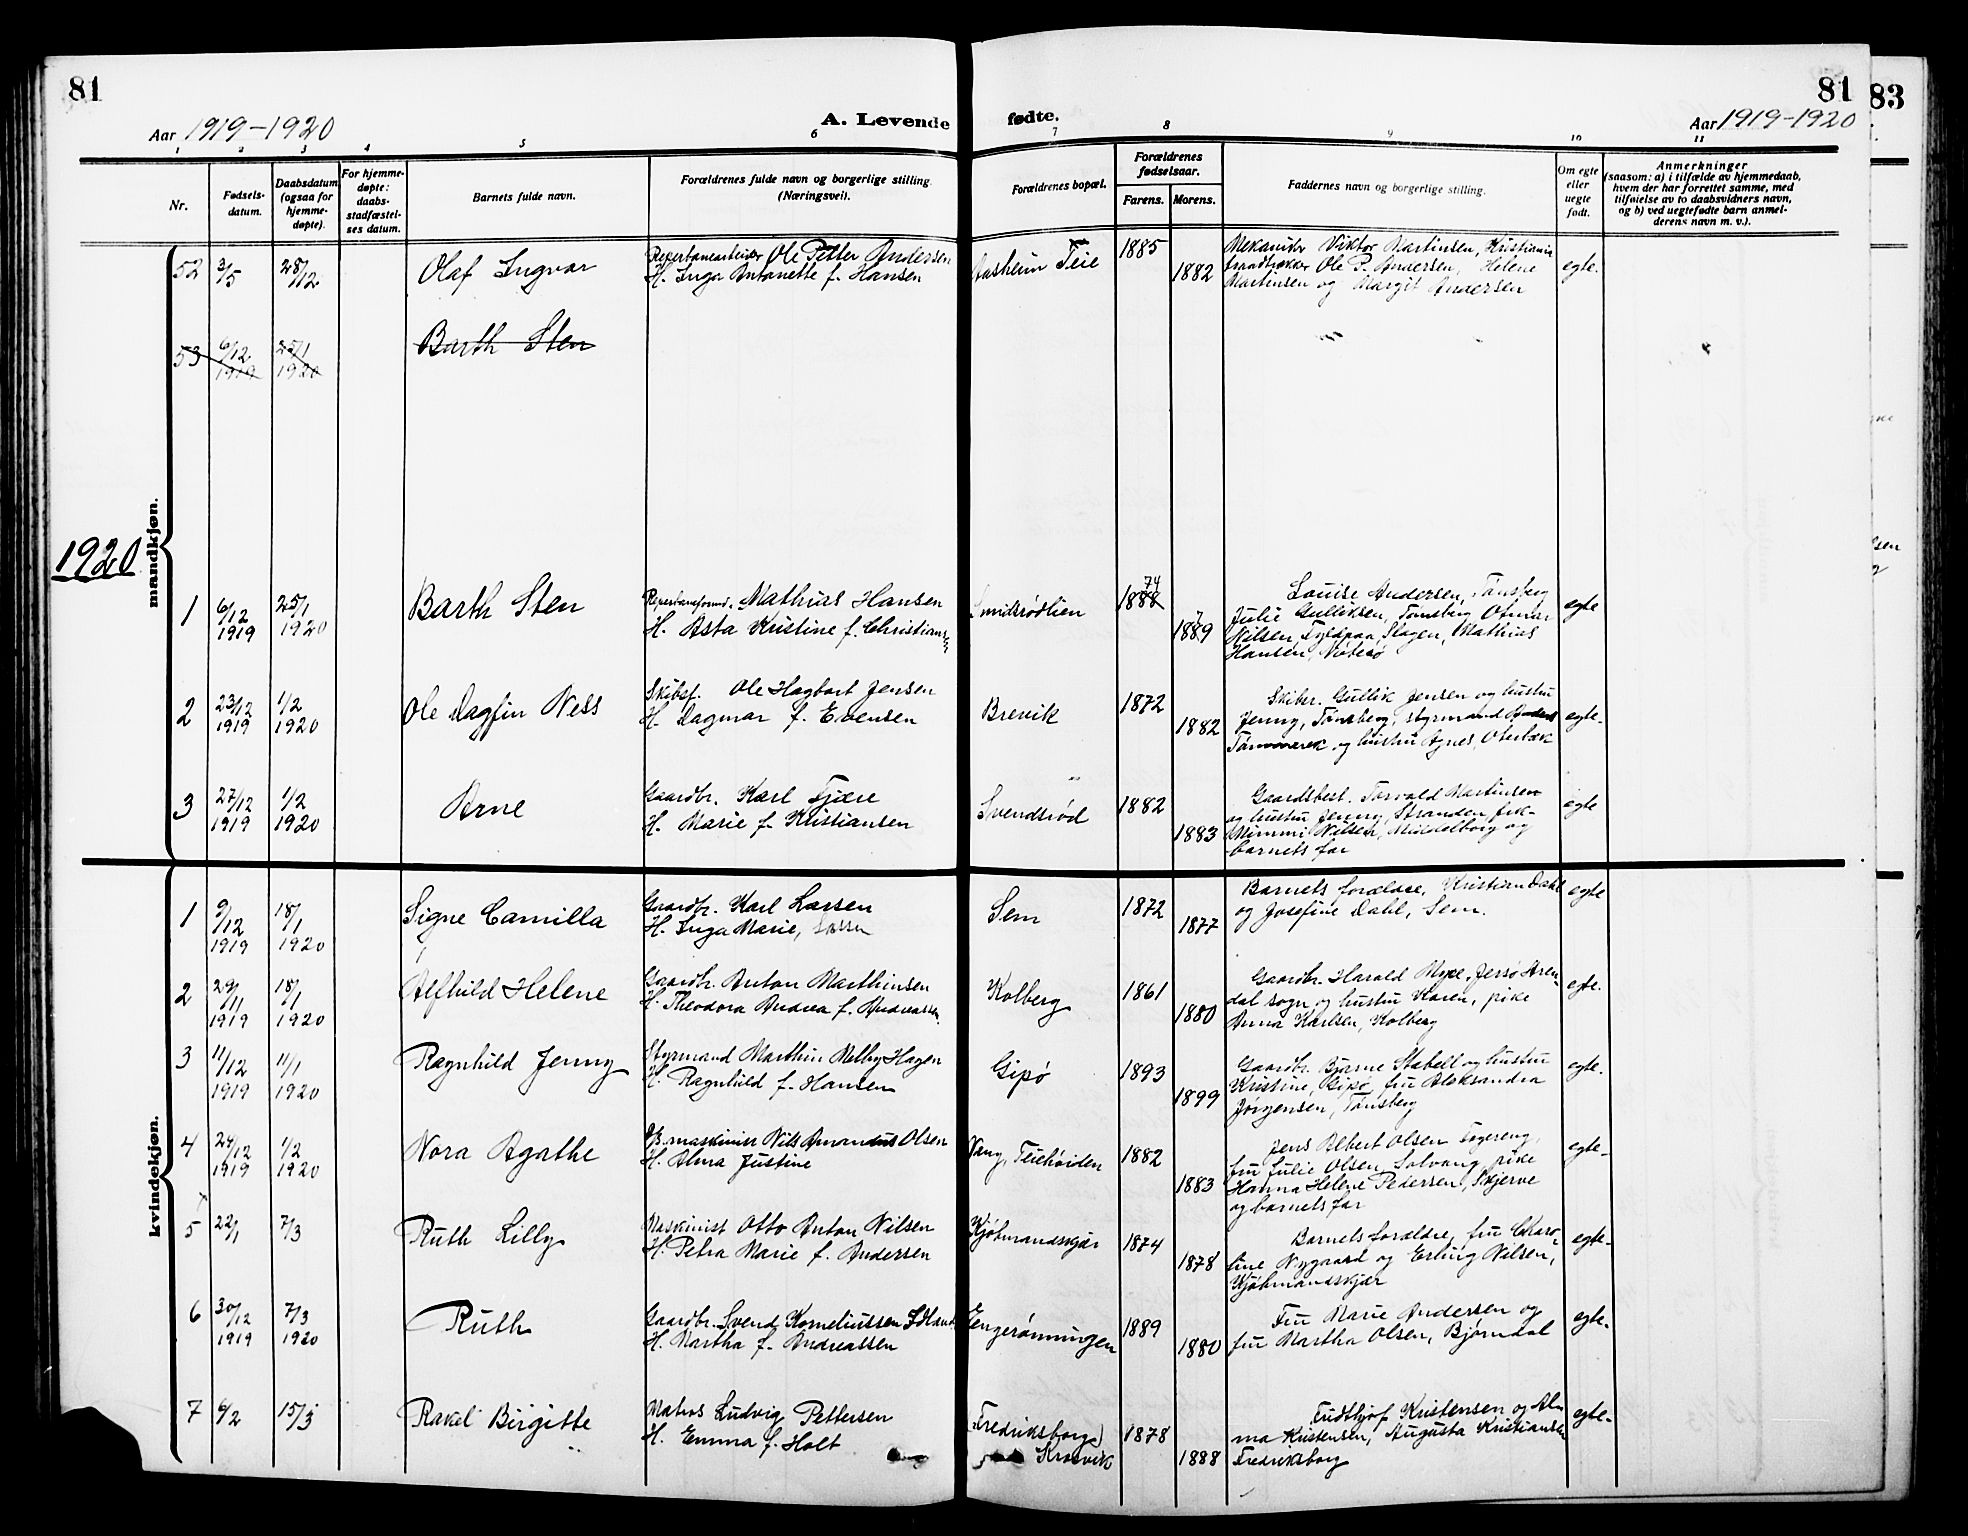 81
Aar 1919-1920
A. Levende
fødte.
Aar 1919-1920
81
83
1 2 3 4 5 6 7 8 9 10 11
Nr.
Fødsels-
datum.
Daabsdatum
(ogsaa for
hjemme-
døpte).
For hjemme-
døpte:
daabs-
stadfæstel-
ses datum.
Barnets fulde navn.
Forældrenes fulde navn og borgerlige stilling.
(Næringsvei).
Forældrenes bopæl.
Forældrenes
fødselsaar.
Farens. Morens.
Faddernes navn og borgerlige stilling.
Om egte
eller
uegte
født.
Anmerkninger
(saasom: a) i tilfælde av hjemmedaab,
hvem der har forrettet samme, med
tilføielse av to daabsvidners navn,
og b) ved uegtefødte barn anmel-
derens navn m. v.).
mandkjøn.
52 3/5 28/12 Olaf Ingvar
Reperbanearbeider Ole Petter Andersen
H. Inga Antonette f. Hansen
Aasheim Teie 1885 1882
Mekaniker Viktor Martinsen, Kristiania
Ole P. Andersen, Helene
Martinsen og Margit Andersen
egte.
53 6/12 1919 25/1 1920 Barth Sten
1920
1 6/12 1919 25/1 1920 Barth Sten
Reperbaneformd. Mathias Hansen
H. Asta Kristine f. Christiansen
Smidsrødlien 1888 74 1889 7
Louise Andersen, Tønsberg
Julie Gulliksen, Tønsberg Otmar
Nilsen, Slagen, Mathias
Hansen, Nøterø
egte
2 23/12 1919 1/2 1920 Ole Dagfin Ness
Skibsf. Ole Hagbart Jensen
H. Dagmar f. Evensen
Brevik 1872 1882
Skibsr. Gullik Jensen og hustru
Jenny, Tønsberg, styrmand
og hustru Agnes, Oterbæk
egte.
3 27/12 1919 1/2 1920 Arne
Gaardbr. Karl Fjære
H. Marie f. Kristiansen
Svendsrød 1882 1883
Gaardsbest. Torvald Martinsen
og hustru Jenny, Stranden, frk.
Mimmi Nilsen, Middelborg og
barnets far
egte
kvindekjøn.
1 9/12 1919 18/1 1920 Signe Camilla
Gaardbr. Karl Larsen
H. Inga Marie, Larsen
Sem 1872 1877
Barnets forældre, Kristian Dahl
og Josefine Dahl, Sem.
egte
2 29/11 1919 18/1 1920 Alfhild Helene
Gaardbr. Anton Marthinsen
H. Theodora Andrea f. Andreassen.
Kolberg 1861 1880
Gaardbr. Harald Myre, Jersø Aren-
dal sogn og hustru Karen, pike
Anna Karlsen, Kolberg
egte.
3 11/12 1919 11/1 1920 Ragnhild Jenny
Styrmand Marthin Melby Hagen
H. Ragnhild f. Hansen
Gipø 1893 1899
Gaardbr. Bjarne Stabell og hustru
Kristine, Gipø, fru Aleksandra
Jørgensen, Tønsberg
egte.
4 24/12 1919 1/2 1920 Nora Agathe
maskinist Nils Amandus Olsen
H. Alma Justine
Vang, Teiehøiden 1882 1883
Jens Albert Olsen Fogereng,
fru Julie Olsen, Solvang, pike
Hanna Helene Pedersen, Skjerve
og barnets far
egte-
5 22/1 7/3 Ruth Lilly
Maskinist Otto Anton Nilsen
H. Petra Marie f. Andersen
Kjøbmandsskjær 1874 1878
Barnets forældre, fru Charo-
line Nygaard og Erling Nilsen,
Kjøbmandsskjær
egte-
6 30/12 1919 7/3 1920 Ruth
Gaardbr. Svend Korneliussen
H. Martha f. Andreassen
Engerønningen 1889 1880
Fru Marie Andersen og
fru Martha Olsen, Bjørndal
egte.
7 6/2 15/3 Rakel Birgitte
Matros Ludvig Pettersen
H. Emma f. Holt
Fredriksborg) Krosvik 1878 1888
Fridthjof Kristensen og Al-
ma Kristensen, Augusta Kristiansen
Fredriksborg
egte-